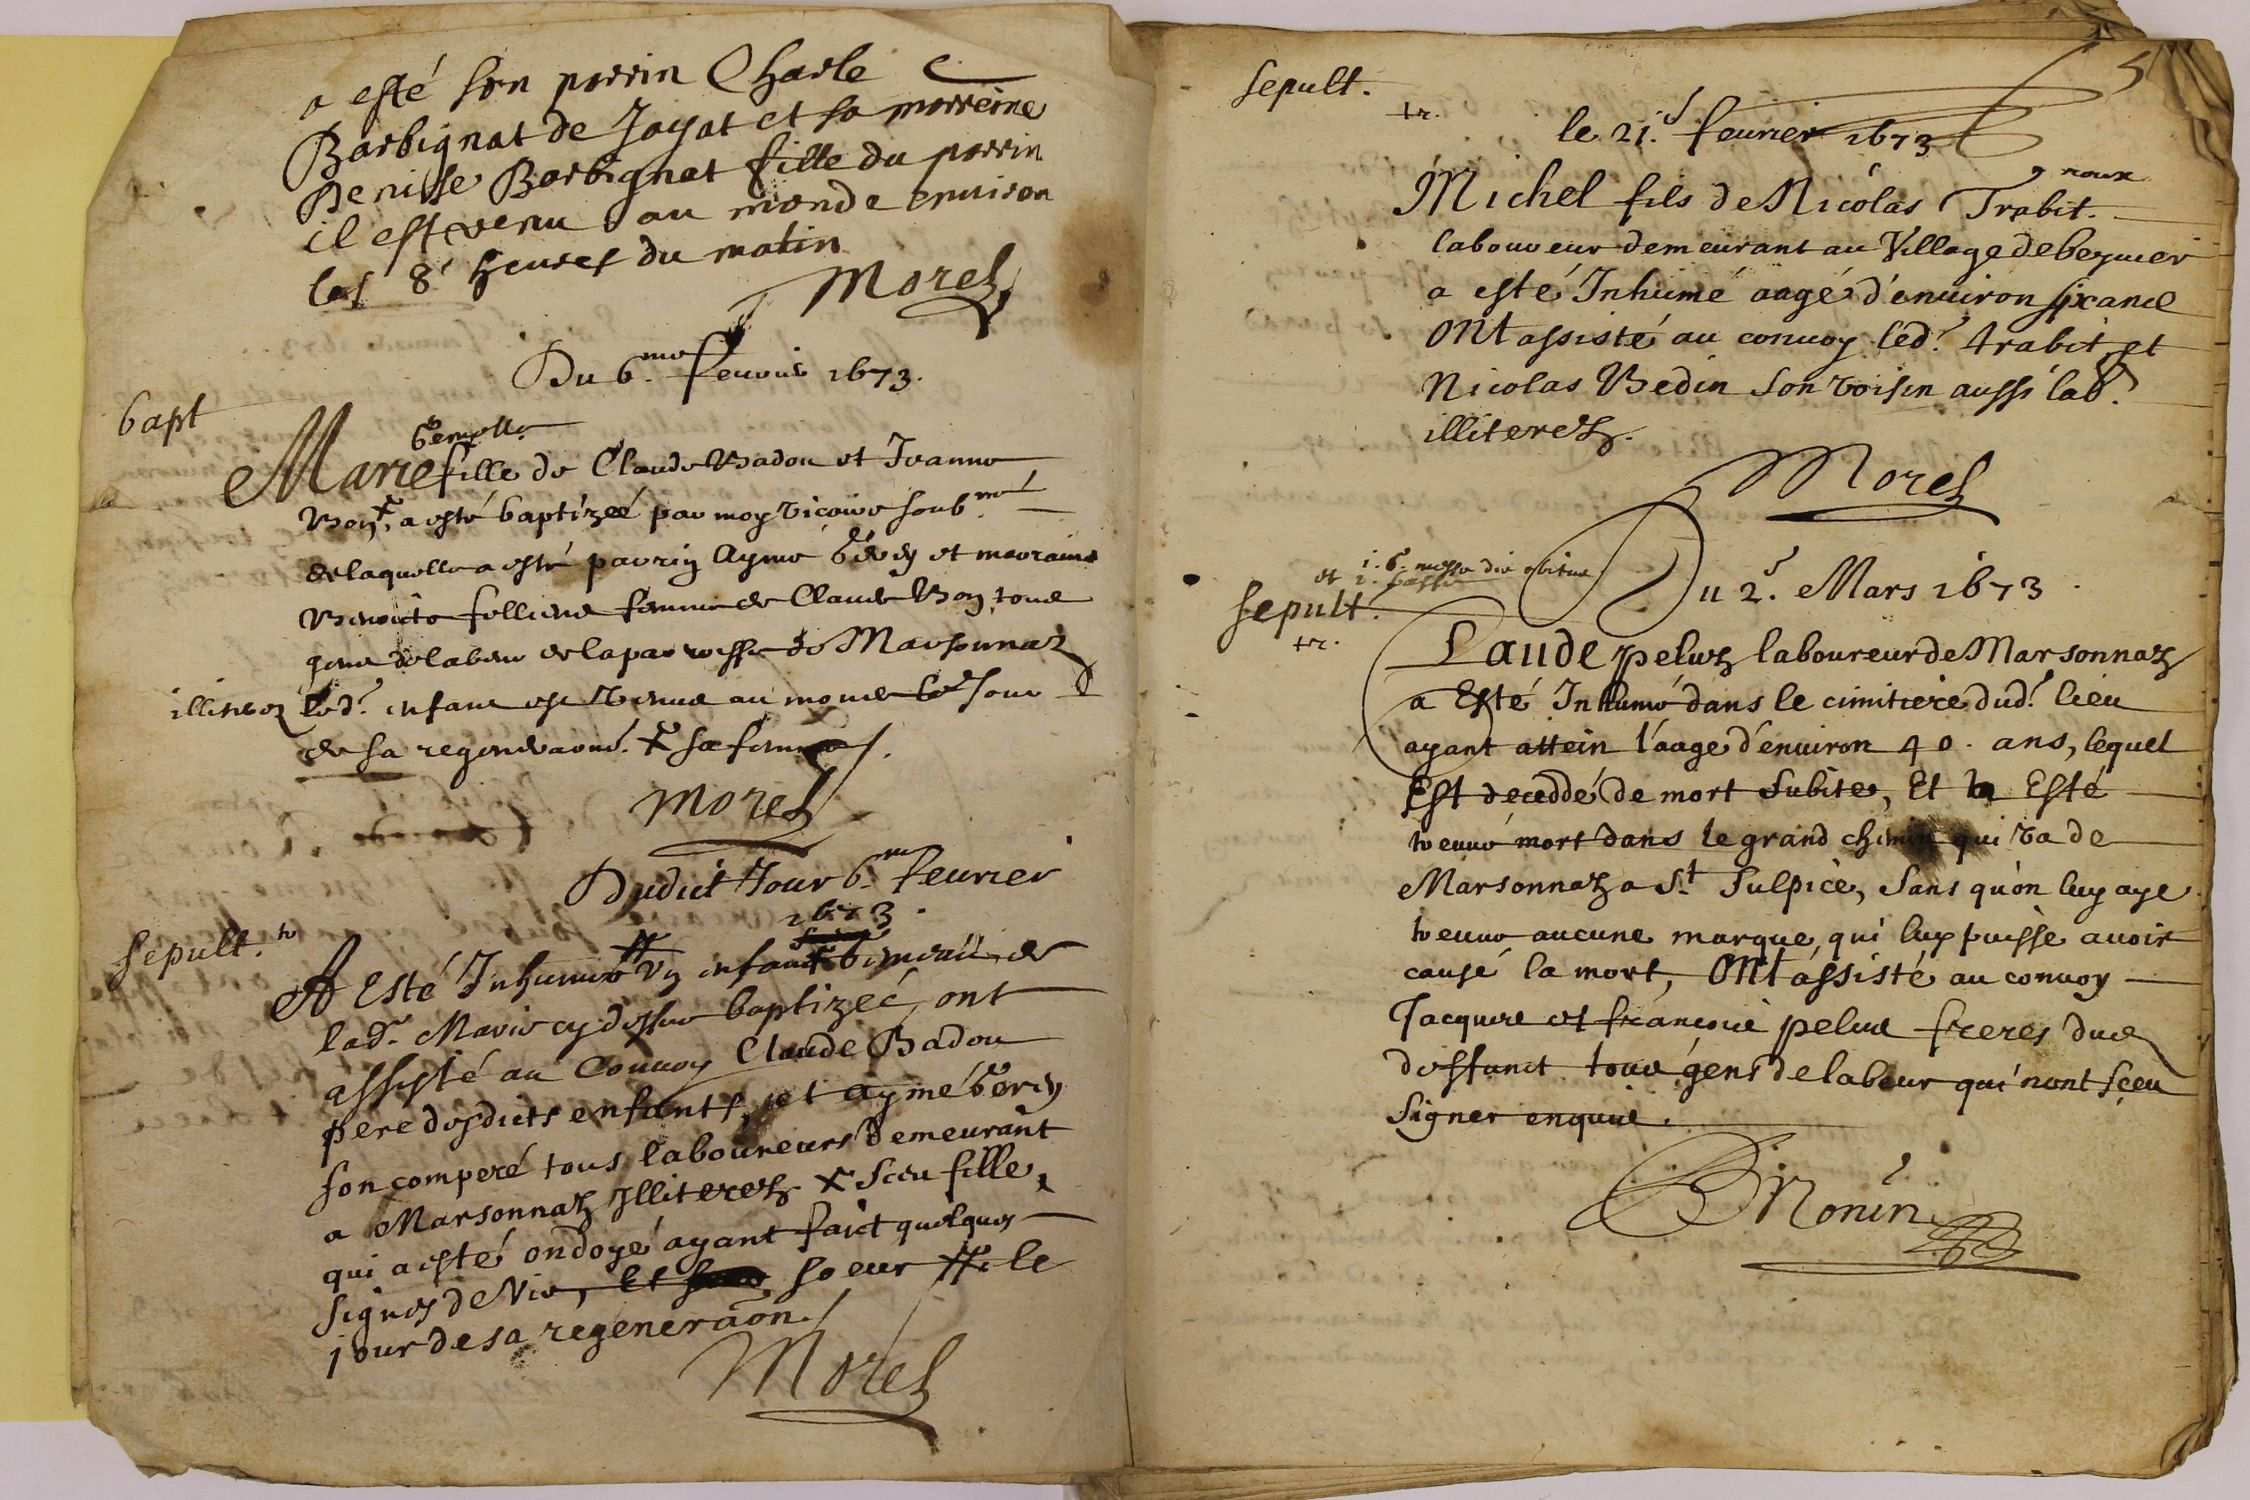 a esté son parrin Charle
Barbignat de Jayat et sa marreine
Denisse Barbignat fille du parrin
il est venu au monde environ
les 8 heures du matin
Morel
Du 6.me feurie 1673.
bapt
Gemelle
Marie fille de Claude Badou et Jeanne
Bon + a esté baptizeé par moy vicaire soub.né
de laquelle a esté parrin Ayme et marraine
Benoite femme de Claude Bon tous
gens de labeur de la paroisse de Marsonnaz
illiterez led. enfant est venue au monde le Jour
de sa regeneraoné. + sa femme
Morel
Dudict Jour 6.m feurier
1673.
Sepult.
A Esté Inhumé # vn enfant de
lad. Marie cy dessus baptizeé, ont
assisté au Conuoy Claude Badou
pere desdicts enfants, et aymé
son comperé tous laboureurs demeurant
a Marsonnaz Illiterez + sceu fille
qui a esté ondoyé ayant faict quelques
signes de Vie, Et soeur # le
jour de sa regeneraon
Morel
5
Sepult.
tr.
le 21. feurier 1673
noux
Michel fils de Nicolas Trabit.
laboureur demeurant au Village de beyuier
a esté Inhumé aagé d'enuiron six ans
ONt assisté au conuoy led. trabit et
Nicolas Bedin son voisin aussi lab.
illiterez.
Morel
i. 6. messe die obitus
et 2. basse
Sepult.
tr.
Du 2. Mars 1673.
Laude peluz laboureur de Marsonnaz
a Esté Inhumé dans le cimitiere dud. lieu
ayant attein l'aage d'enuiron 40. ans, lequel
Est deceddé de mort subite, Et a Esté
treuué mort dans le grand chemin qui va de
Marsonnaz a S.t Sulpice, sans qu'on luy aye
treuué aucune marque, qui luy puisse auoir
causé la mort, ONt assisté au conuoy
Jacques et françois pelus freres dud
deffunct tous gens de labeur qui n'ont sceu
signer enquis.
Nonin